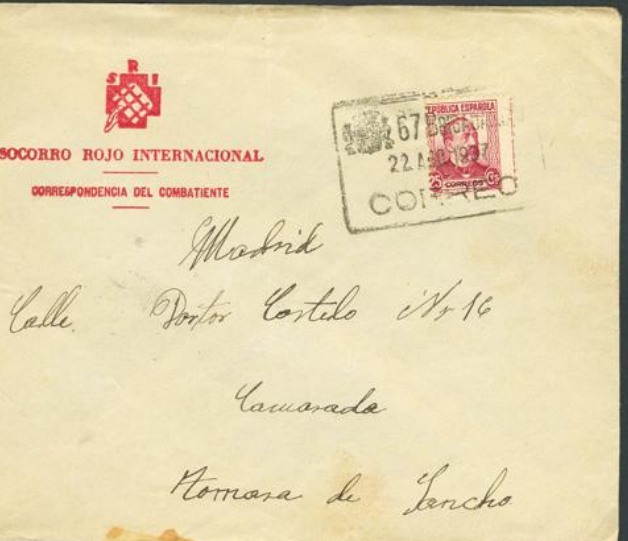 S R I
SOCORRO ROJO INTERNACIONAL
CORRESPONDENCIA DEL COMBATIENTE
REPÚBLICA ESPAÑOLA
67 BRIGADA
22 AGO 1937
25 CORREOS Cts
CORREO
Madrid
Calle. Doctor Castelo Nr 16
Camarada
Tomasa de Sancho